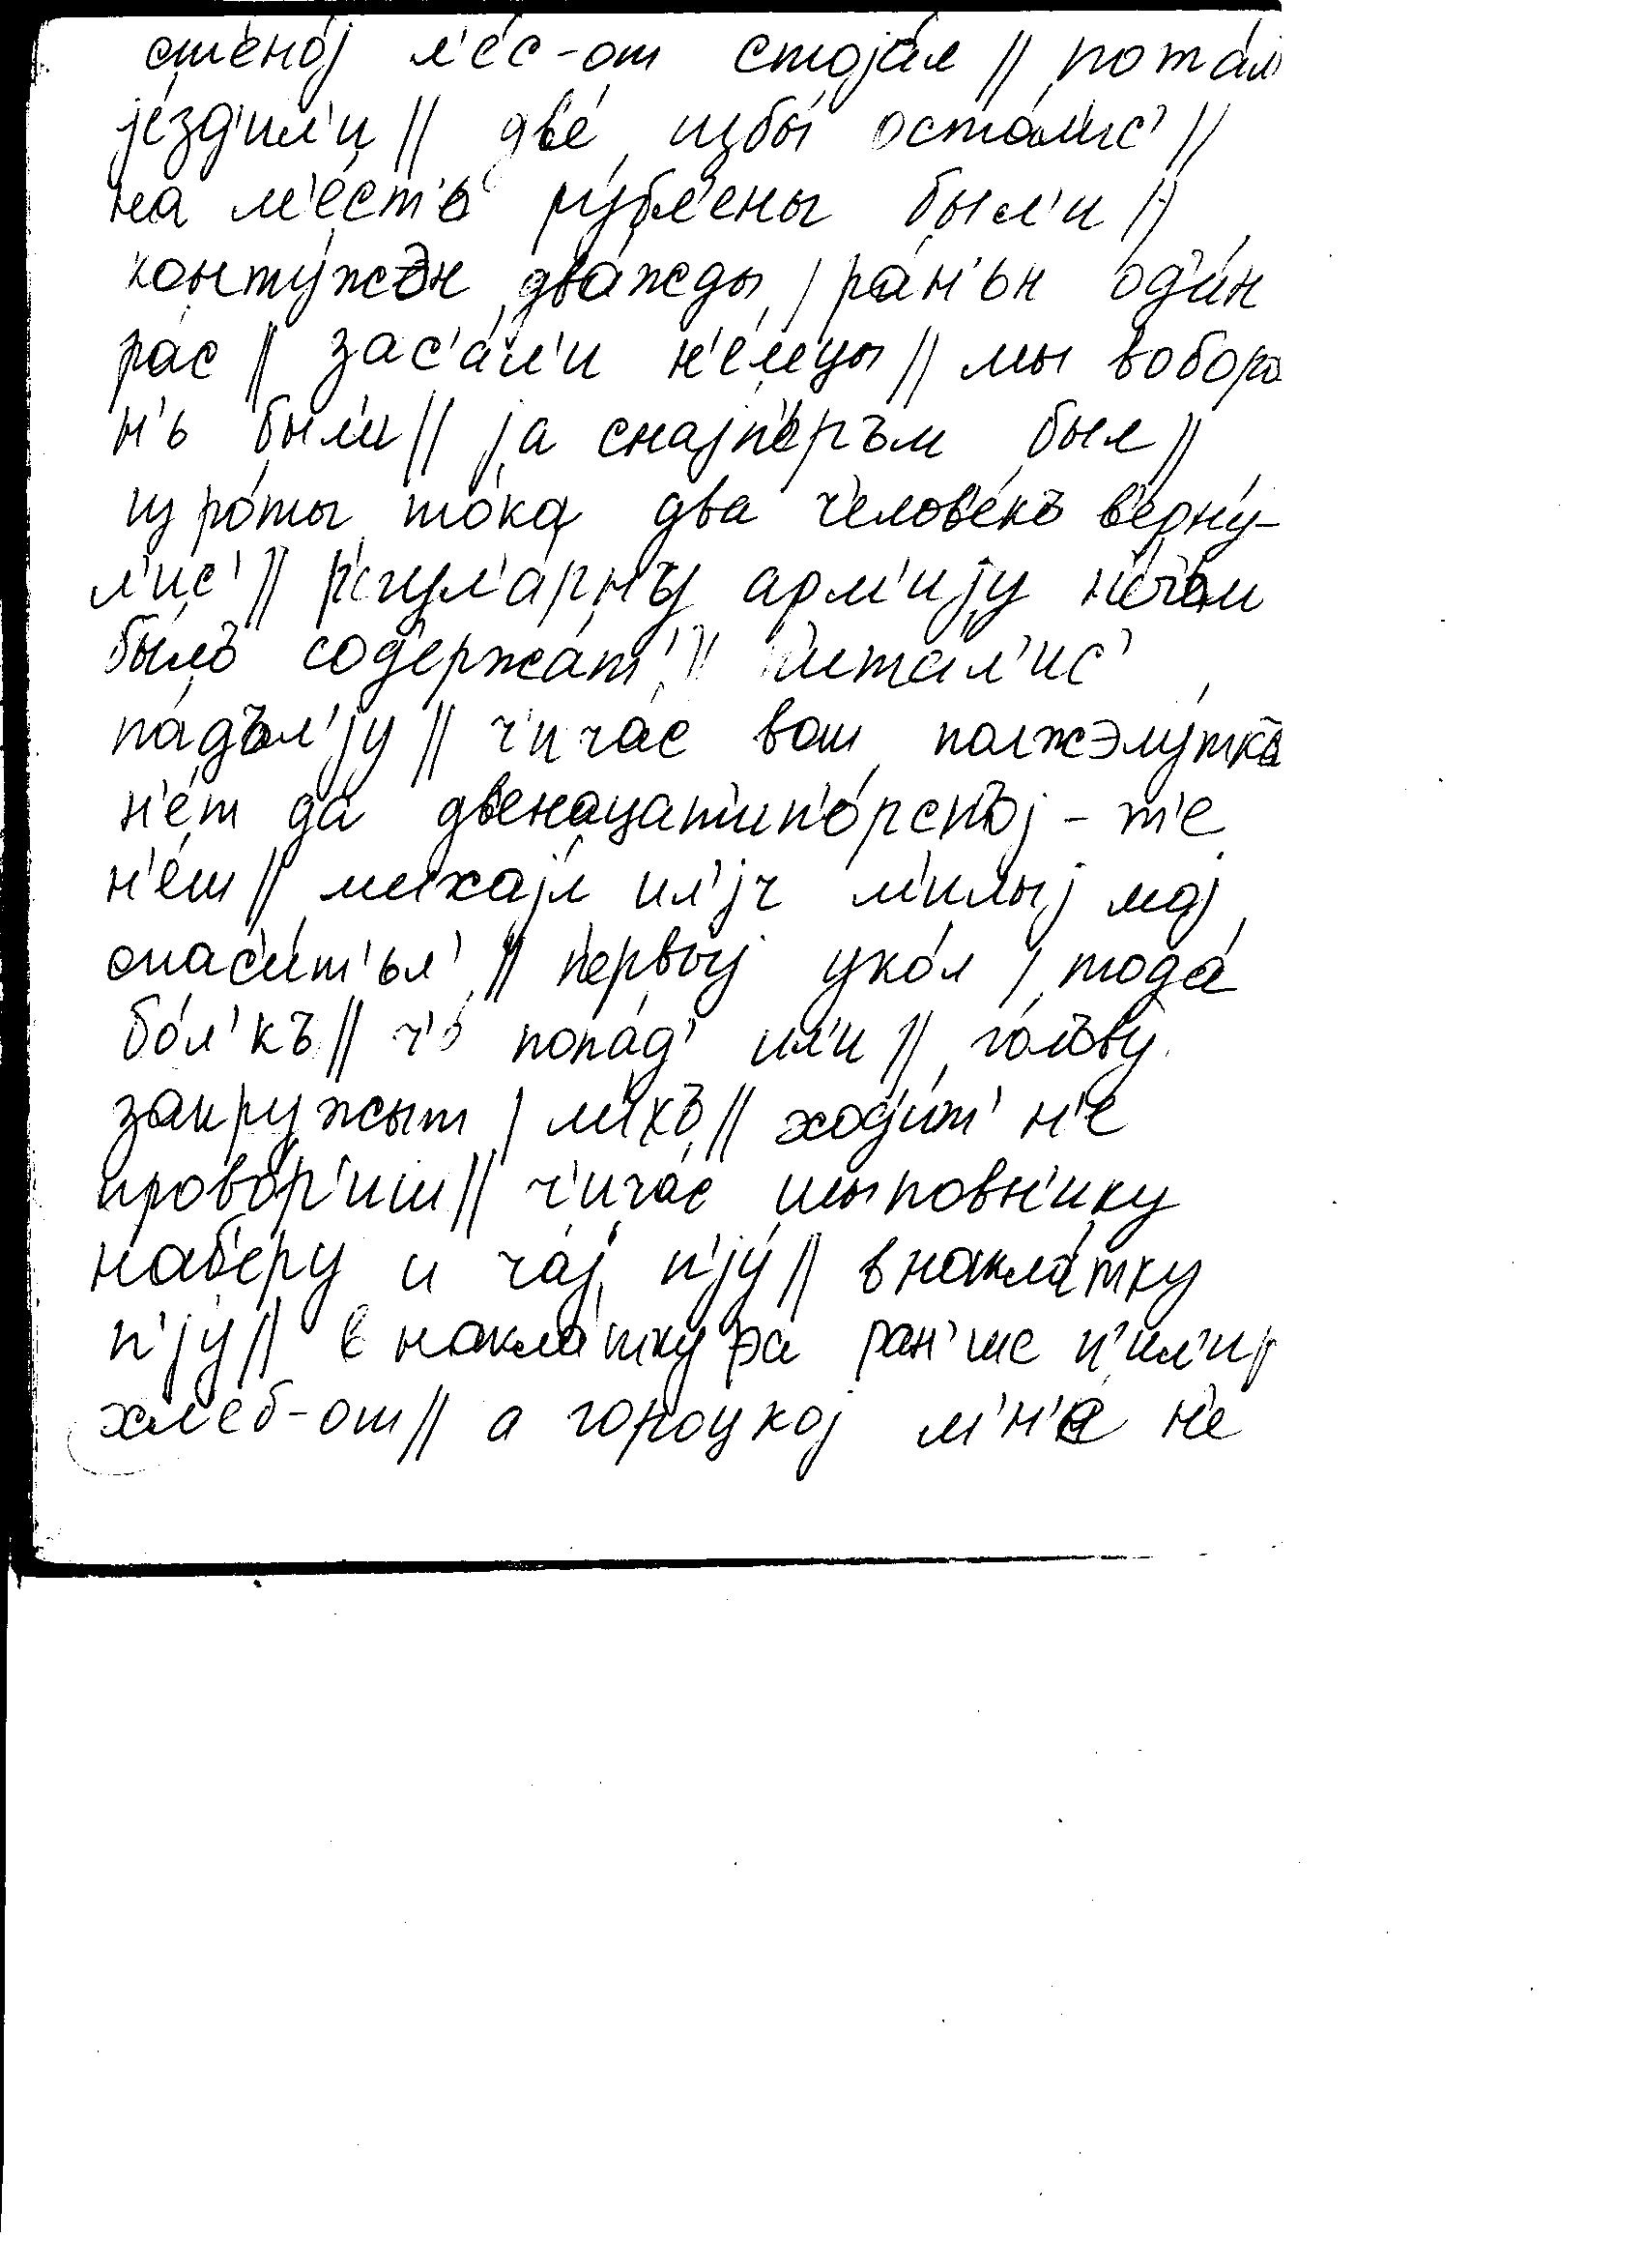 ст'ено́j л'е́с-от стоjа́л // пота́м
jе́зд'ил'и // дв'е́ избы́ оста́лис' //
на м'е́ст'ь ру́бл'ены был'и //
конту́жэн два́жды / ра́н'ьн од'и́н
ра́с // зас'а́л'и н'е́мцы // мы воборо
н'ь был'и // jа снаjп'еръм был //
из ро́ты то́ка два ч'елов'е́къ в'ерну́-
л'ис' // р'егул'а́рнъу арм'иjу н'е́чьм
бы́лъ сод'ержа́т' // п'ита́л'ис'
па́дъл'jу // ч'ича́с вот полжэлу́тка
н'е́т да двенацатип'о́рснъj - т'е
н'е́т // михаjл ил'jч м'илыj моj
спас'и́т'ьл' // п'ервыj уко́л / тода́
бо́л'къ // ч'о́ попа́д' ил'и // го́лъву
закружыт / л'и́хъ // ход'и́т' н'е
прово́р'иш // ч'ича́с шыповн'ику
наб'еру́ и ча́j п'jу́ // внакла́тку
п'jу́ // в накла́тку ра ран'ше п'ил'и //
хл'еб-от // а гороцкоj м'н'е́ н'е